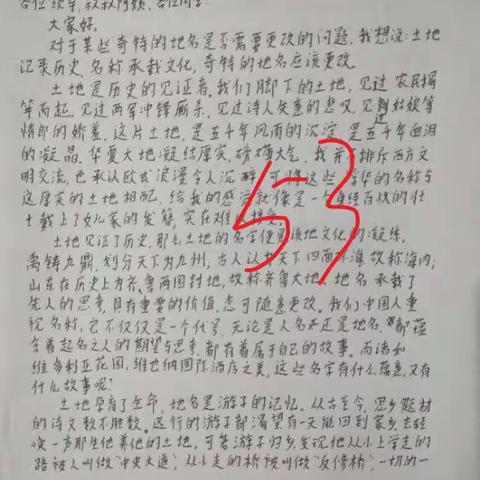 大家好,
对于某些奇特的地名是否需要更改的问题,我想说:土地
记录历史,名称承载文化,奇特的地名应该更改。
土地是历史的见证者,我们脚下的土地,见过农民揭
竿而起,见过两军冲锋厮杀,见过诗人失意的悲叹,见过姑娘等
情郎的娇羞。这片土地,是五千年风雨的沉淀,是五千年血泪
的凝晶。华夏大地凝结厚实,磅礴大气,我并排斥西方文
明交流,也承认欧式浪漫令人沉醉,可将这些华的名称与
这厚实的土地相配,给我的感觉就像是一身经百战的壮
士戴上了女儿家的发簪,实在难接受。
土地见证了历史,那么土地的名字便是该地文化的凝练。
禹铸九鼎,划分天下为九州,古人认为天下四面环海故称海内;
山东在历史上为齐、鲁两国封地,故称齐鲁大地。地名承载了
先人的思考,具有重要的价值,怎可随意更改。我们中国人重
视名称,它不仅仅是一个代号,无论是人名亦还是地名,都蕴
含着起名之人的期望与思考,都有着属于自己的故事。而诸如
维多利亚花园,维也纳国际酒店之类,这些名字有什么蕴意,又有
什么故事呢?
土地孕育了生命,地名是游子的记忆。从古至今,思乡题材
的诗文数不胜数。远行的游子都渴望有一天能回到家乡,去轻
唤一声那生他养他的土地,可等游子归乡,发现他从小上学走的
路被人叫做“中央大道”,从小走的桥被叫做“友修桥”,一切的一
53